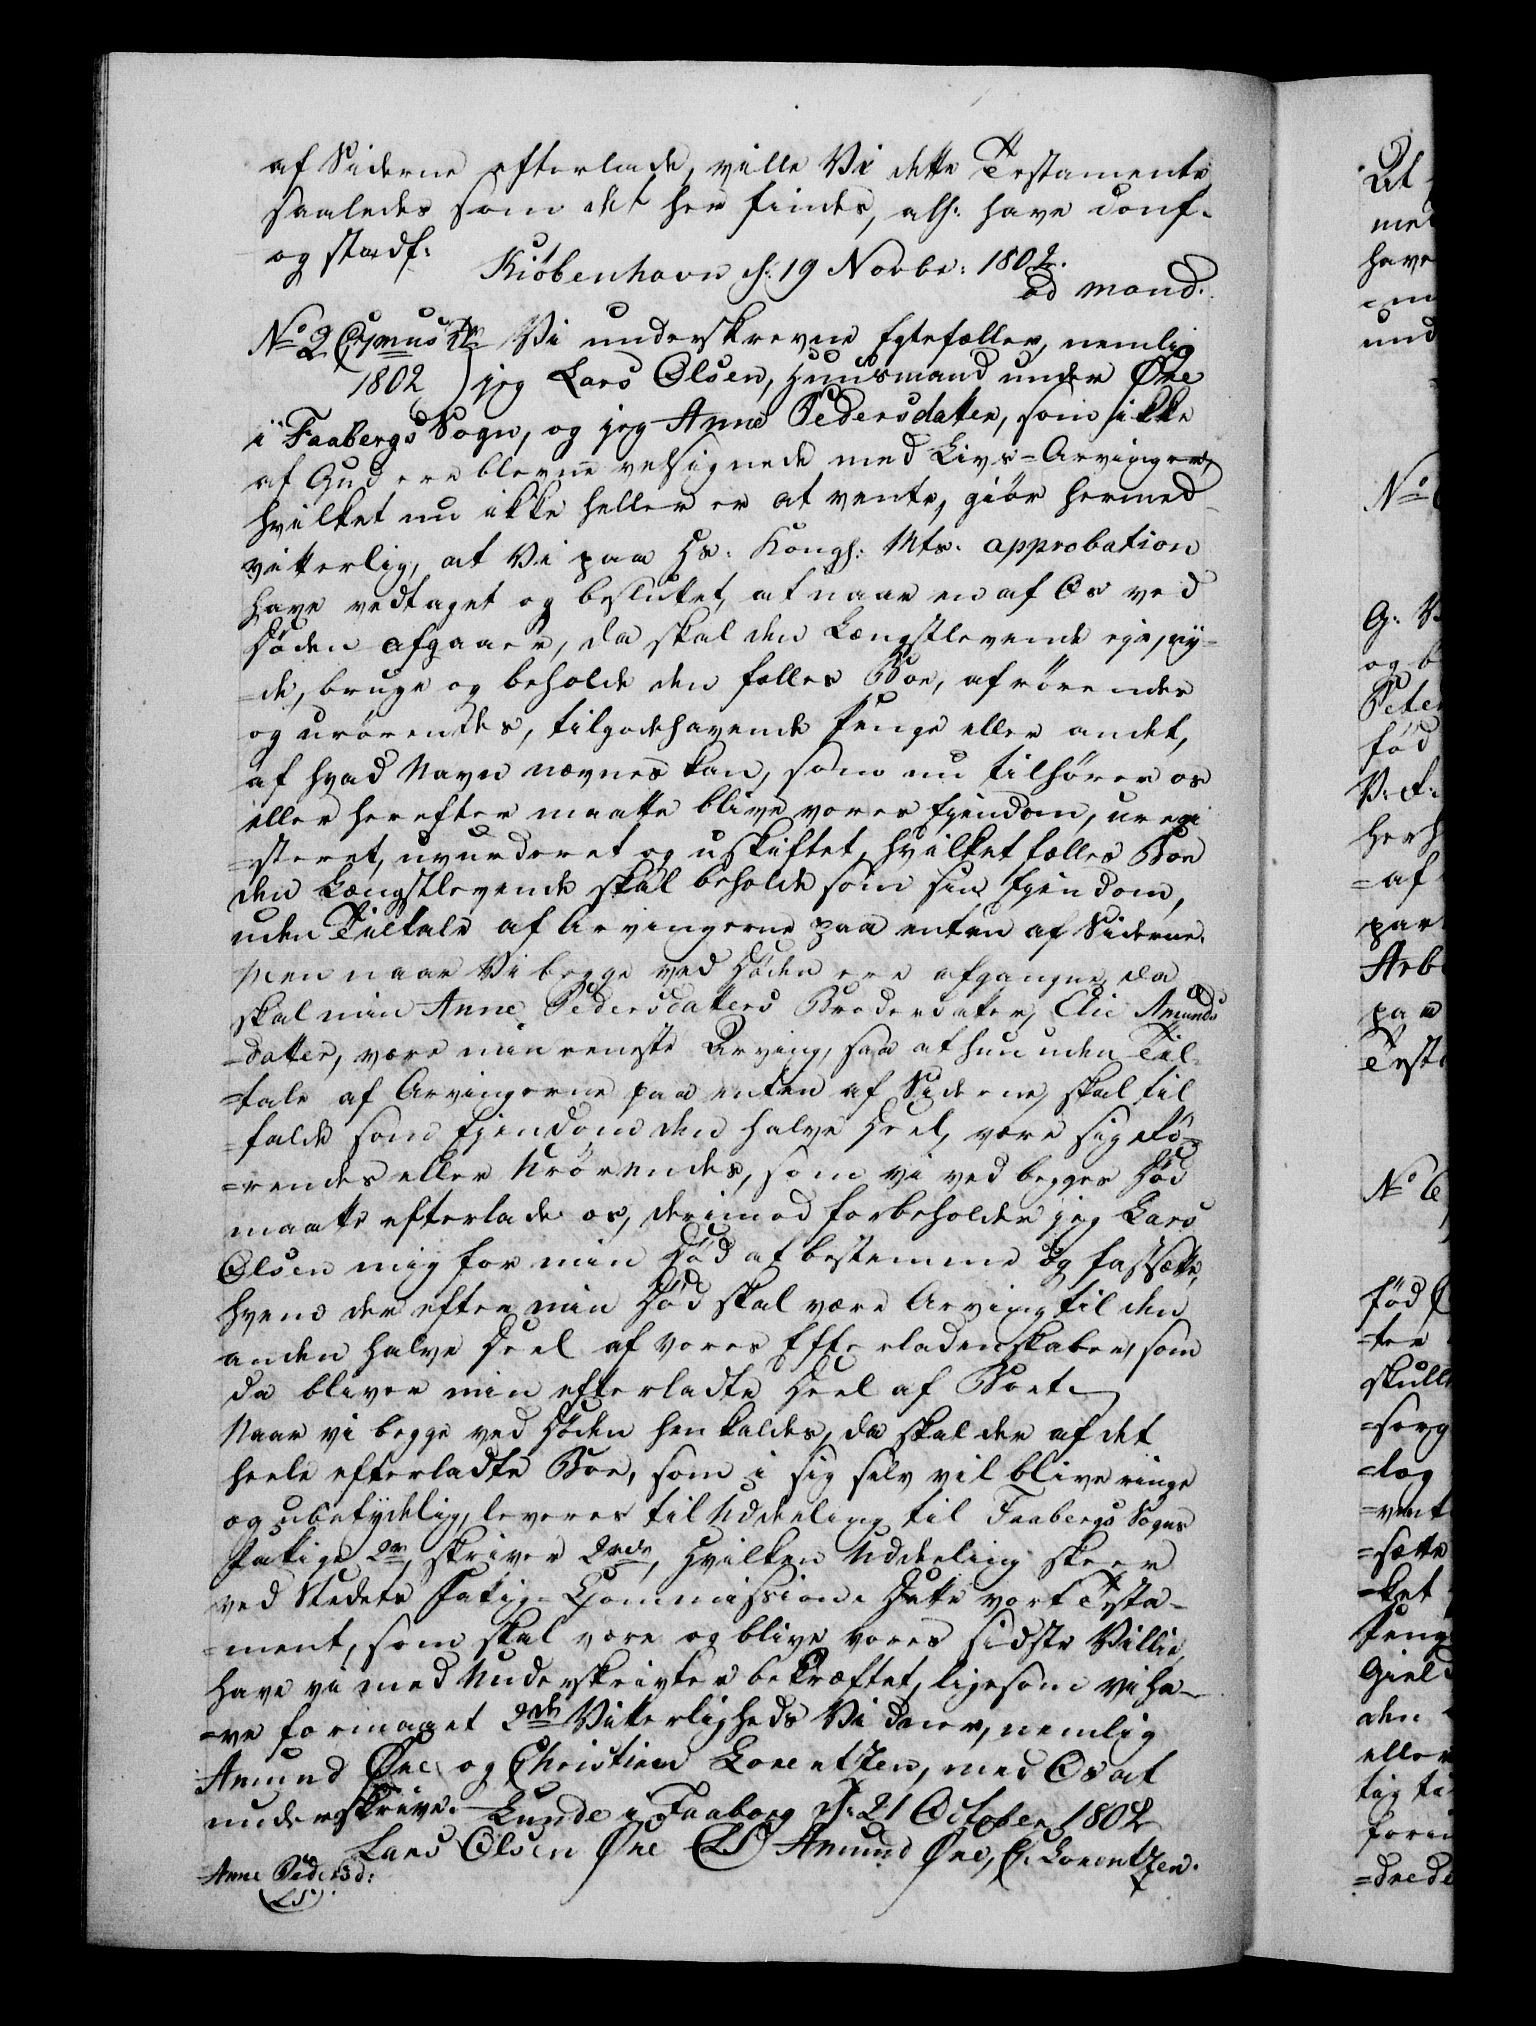 af Siderne efterlade, ville Vi dette Testamente
saaledes som det her findes, alh: have conf.
og stadf:
Kiøbenhavn d: 19 Novbr: 1802.
ad mand.
No 2 Vi underskrevne Egtefæller, nemlig
1802 ) jeg Lars Olsen, Huusmand under Øre
i Faabergs Sogn, og jeg Anne Pedersdatter, som ikke
af Gud ere blevne velsignede med Livs-Arvinger,
hvilket nu ikke heller er at vente, giør hermed
vitterlig, at Vi paa Hs: Kongl: Mts: approbation
have vedtaget og besluttet, at naar en af Os ved
Døden afgaaer, da skal den Længstlevende eje, ny-
=de, bruge og beholde den fælles Boe, af rørendes
og urørendes, tilgodehavende Penge eller andet,
af hvad Navn nævnes kan, som nu tilhører os
eller herefter maatte blive vores Ejendom, uregi
=steret, uvurderet og uskiftet, hvilket fælles Boe
den Længstlevende skal beholde som sin Ejendom,
uden Tiltale af Arvingerne paa enten af Siderne.
Men naar Vi begge ved Døden ere afgangne, da
skal min Anne Pedersdatters Broderdatter, Elie Amunds
=datter, være min eneste Arving, saa at hun uden Til-
=tale af Arvingerne paa enten af Siderne, skal til
=falde som Ejendom den halve Deel, være sig Rø-
=rendes eller Urørendes, som vi ved begges Død
maatte efterlade os, derimod forbeholder jeg Lars
Olsen mig for min Død at bestemme og fastsætte,
hvem der efter min Død skal være Arving til den
anden halve Deel af vores Efterladenskaber, som
da bliver min efterladte Deel af Boet.
Naar vi begge ved Døden henkaldes, da skal der af det
heele efterladte Boe, som i sig selv vil blive ringe
og ubetydelig, leveres til Uddeeling til Faabergs Sogns
Fattige 2 rd, skriver 2 rdr, hvilken Uddeeling skeer
ved Stedets Fattig-Commission. Dette vort Testa-
=ment, som skal være og blive vores sidste Villie,
have vi med Underskrivter bekræftet, ligesom vi ha-
=ve formaaet 2de Vitterligheds Vidner, nemlig
Amund Øre og Christian Lorentzen, med Os at
underskrive. Lunde i Faaberg d: 21 October 1802
Lars Olsen Øre (LS) Amund Øre, C: Lorentzen.
Anne Pedersd:
(LS)